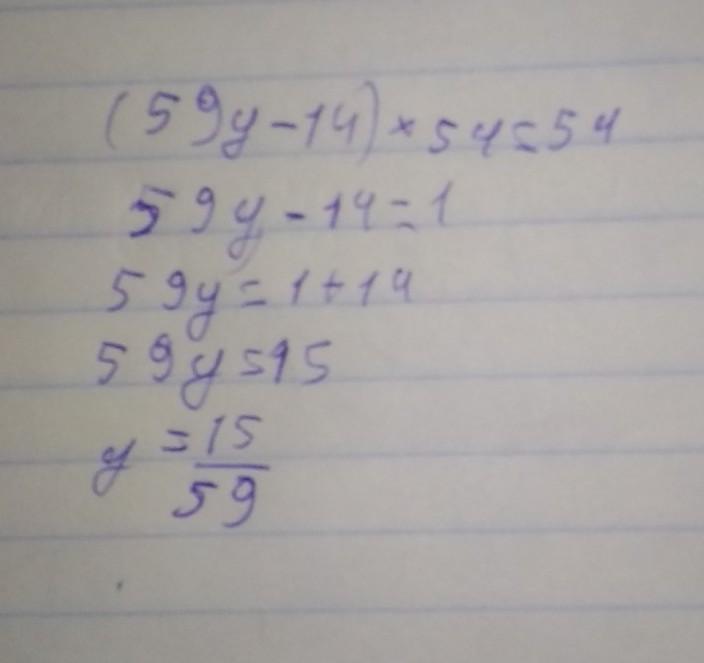 (59y-14)×54=54
59y-14=1
59y=1+14
59y=15
y=15
59